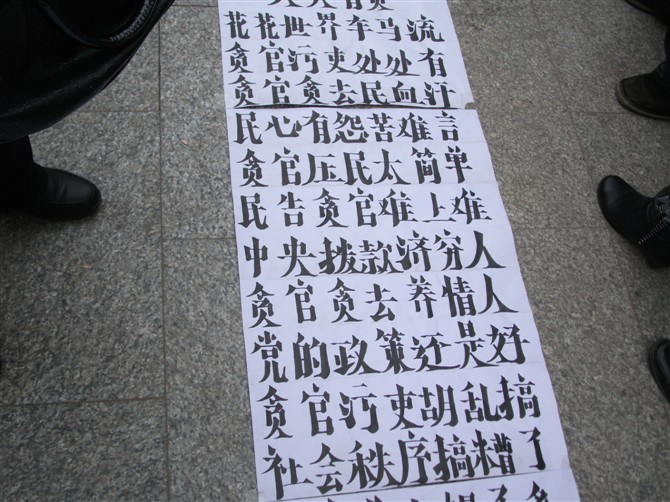 花花世界车马流
贪官污吏处处有
贪官贪去民血汗
民心有怨苦难言
贪官压民太简单
民告贪官难上难
中央拨款济穷人
贪官贪去养情人
党的政策还是好
贪官污吏胡乱搞
社会秩序搞糟了